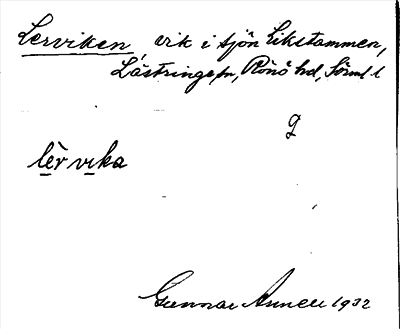 Lerviken, vik i sjön Likstammen,
Lästringe sn, Rönö hd, Söml. l
lèr vika
Gunnar Annell 1932